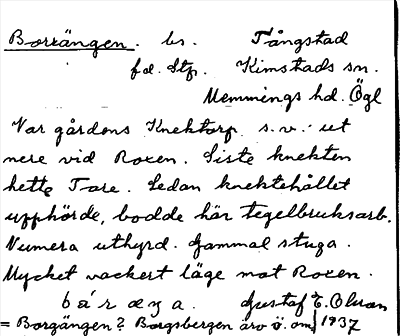 Borrängen. bs. Tångstad
fd. Stp. Kimstads sn.
Memmings hd. Ögl
Var gårdens Knektorp s.v. ut
nere vid Roxen. Siste knekten
hette Tare. Sedan knektehållet
upphörde, bodde här tegelbruksarb.
Numera uthyrd. Gammal stuga.
Mycket vackert läge mot Roxen.
Gustaf E. Olson
= Borgängen? Borgsbergen äro ö. om 1937